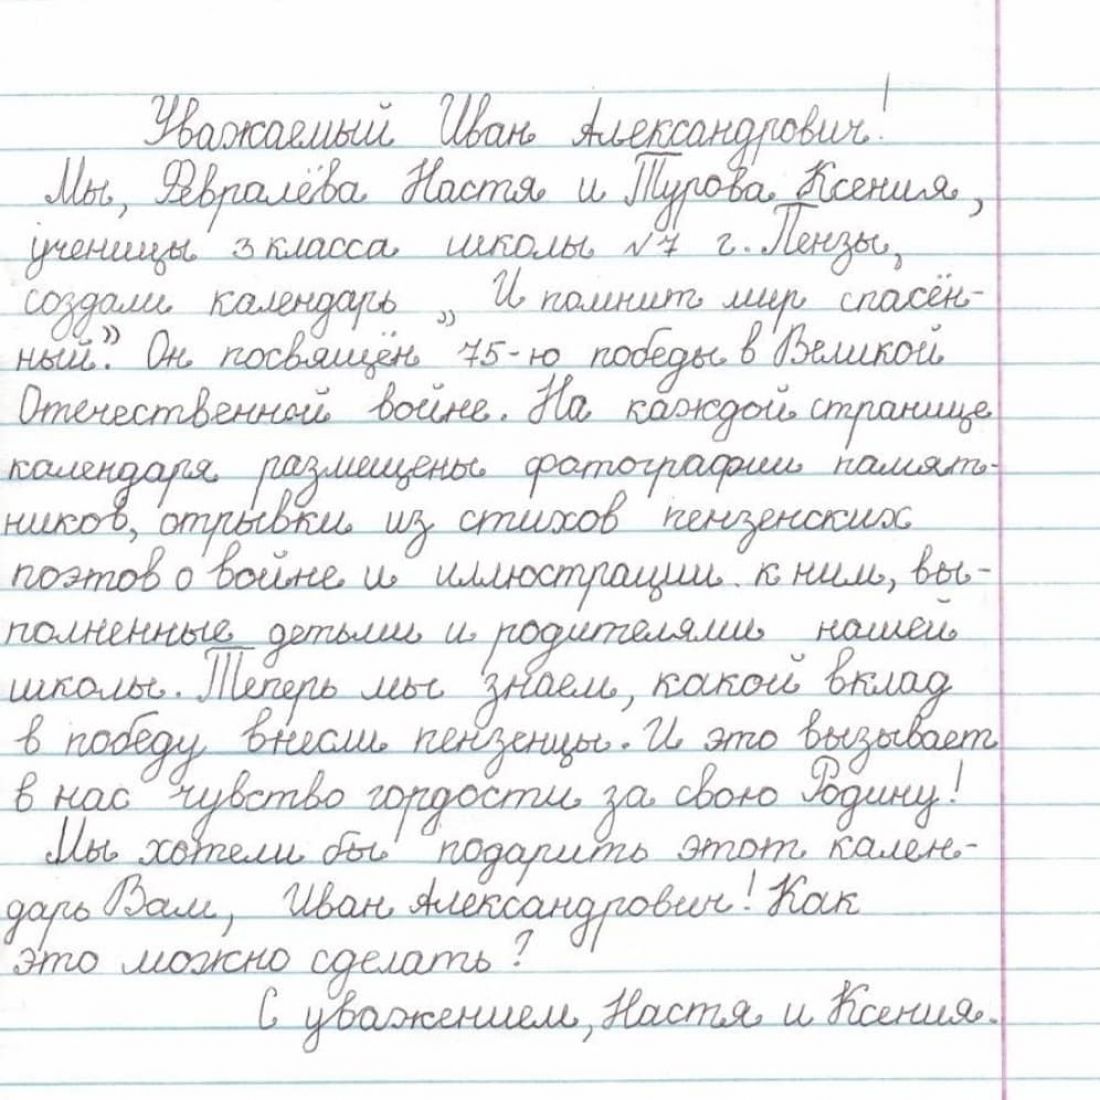 Уважаемый Иван Александрович!
Мы, Февралёва Настя и Турова Ксения,
ученицы 3 класса школы №7 г. Пензы,
создали календарь „И помнит мир спасён-
ный.” Он посвящён 75-ю победы в Великой
Отечественной войне. На каждой странице
календаря размещены фотографии памят-
ников, отрывки из стихов пензенских
поэтов о войне и иллюстрации к ним, вы-
полненные детьми и родителями нашей
школы. Теперь мы знаем, какой вклад
в победу внесли пензенцы. И это вызывает
в нас чувство гордости за свою Родину!
Мы хотели бы подарить этот кален-
дарь Вам, Иван Александрович! Как
это можно сделать?
С уважением, Настя и Ксения.